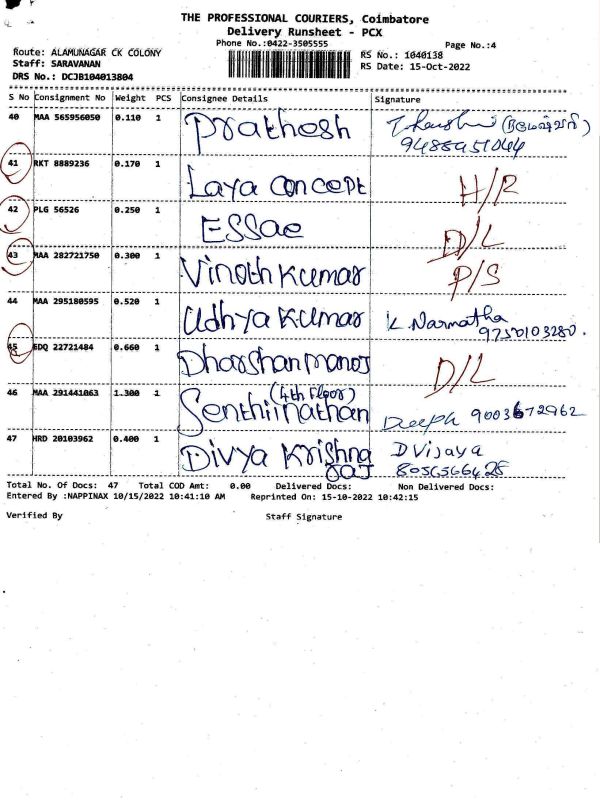 THE PROFESSIONAL COURIERS, Coimbatore
Delivery Runsheet - PCX
Phone No.:0422-3505555
Page No.:4
Route: ALAMUNAGAR CK COLONY
RS No.: 1040138
Staff: SARAVANAN
RS Date: 15-Oct-2022
DRS No.: DCJB104013804
S No Consignment No Weight PCS Consignee Details Signature
40 MAA 565956050 0.110 1 Prathesh
9488951044
41 RKT 8889236 0.170 1 Laya concept H/R
42 PLG 56526 0.250 1 ESSae D/L
43 MAA 282721750 0.300 1 Vinoth Kumar P/S
44 MAA 295180595 0.520 1 Udhya Kumar K. Narmatha
9750103280.
45 EDQ 22721484 0.660 1 Dharshan manoj D/L
46 MAA 291441063 1.300 1 (4th Floor)
Senthilnathan Deepk 9003672962
47 HRD 20103962 0.400 1 Divya Krishna D Vijaya
raj 8056566428
Total No. Of Docs: 47 Total COD Amt: 0.00 Delivered Docs: Non Delivered Docs:
Entered By :NAPPINAX 10/15/2022 10:41:10 AM Reprinted On: 15-10-2022 10:42:15
Verified By Staff Signature